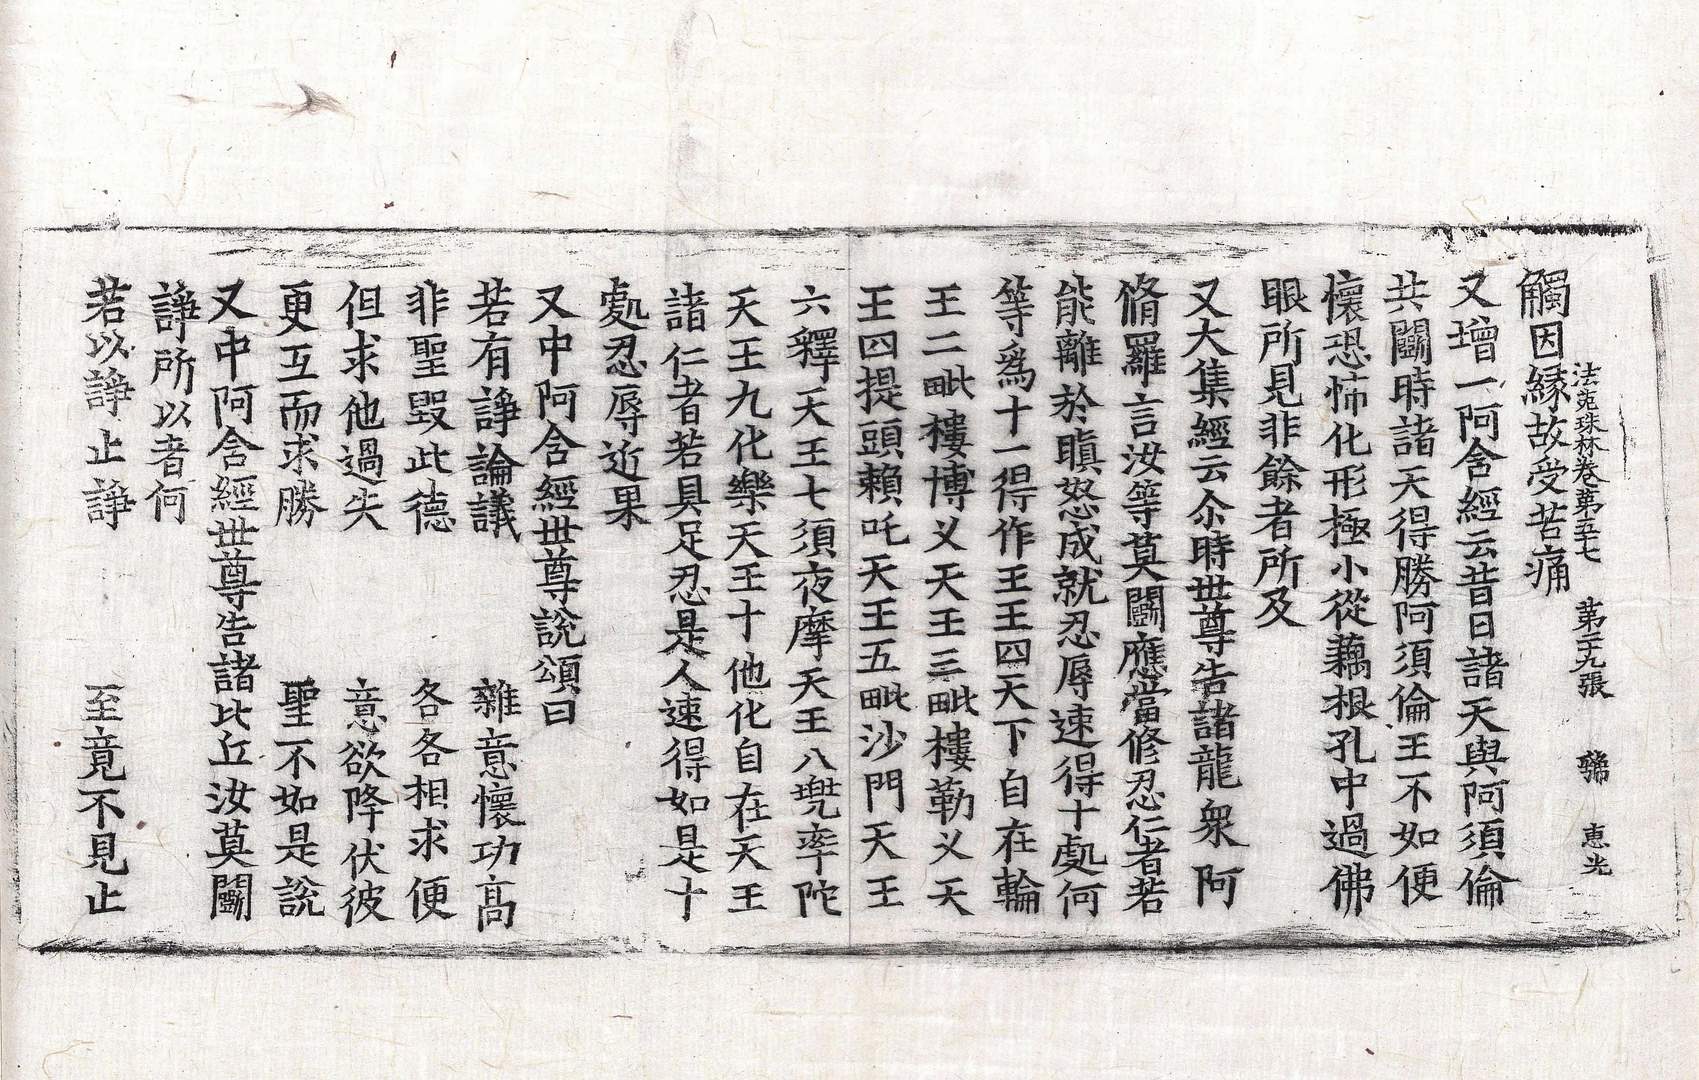 法苑珠林卷第五十七 第二十九張 惠光
觸因緣故受苦痛
又增一阿含經云昔日諸天與阿須倫
共鬭時諸天得勝阿須倫王不如便
懷恐怖化形極小從藕根孔中過佛
眼所見非餘者所及
又大集經云尒時世尊告諸龍衆阿
脩羅言汝等莫鬭應當修忍仁者若
能離於瞋怒成就忍辱速得十處何
等爲十一得作王王四天下自在輪
王二毗樓博义天王三毗樓勒义天
王四提頭賴吒天王五毗沙門天王
六釋天王七須夜摩天王八兠率陀
天王九化樂天王十他化自在天王
諸仁者若具足忍是人速得如是十
處忍辱近果
又中阿含經世尊說頌曰
若有諍論議 雜意懷功高
非聖毀此德 各各相求便
但求他過失 意欲降伏彼
更互而求勝 聖不如是說
又中阿含經世尊告諸比丘汝莫鬭
諍所以者何
若以諍止諍 至竟不見止